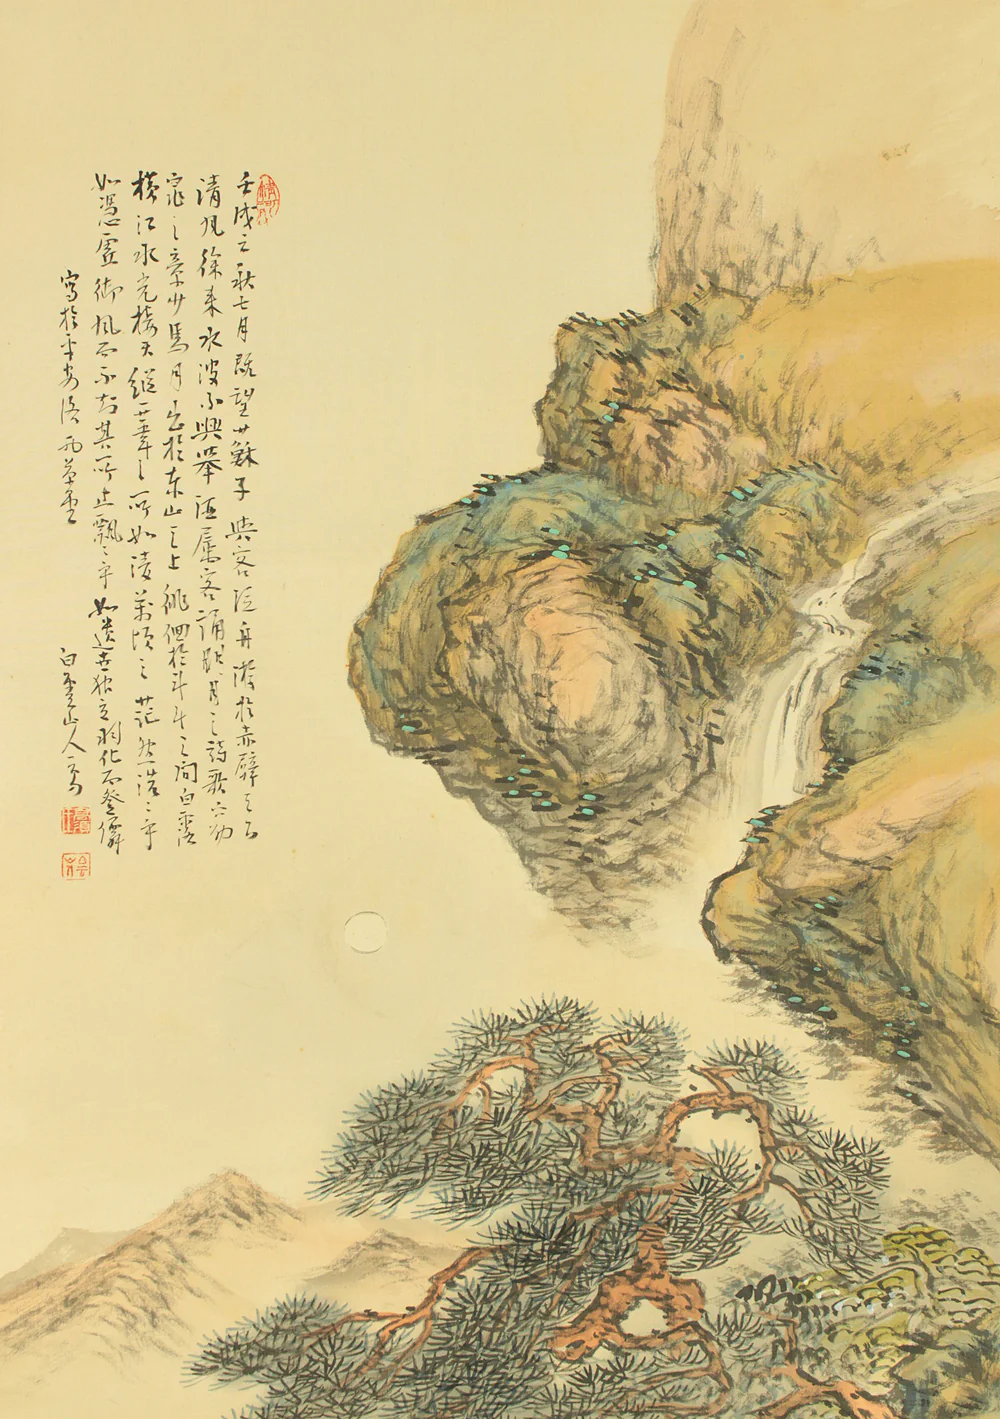 壬戌之秋七月既望蘇子與客泛舟游於赤壁之下
清風徐来水波不興舉酒属客誦明月之詩歌窈
窕之章少焉月出於東山之上徘徊於斗牛之間白露
横江水光接天縦一葦之所如凌萬頃之茫然浩々乎
如馮虚御風而不知其所止飄々乎如遺世独立羽化而登僊
寫於平安
白雲山人